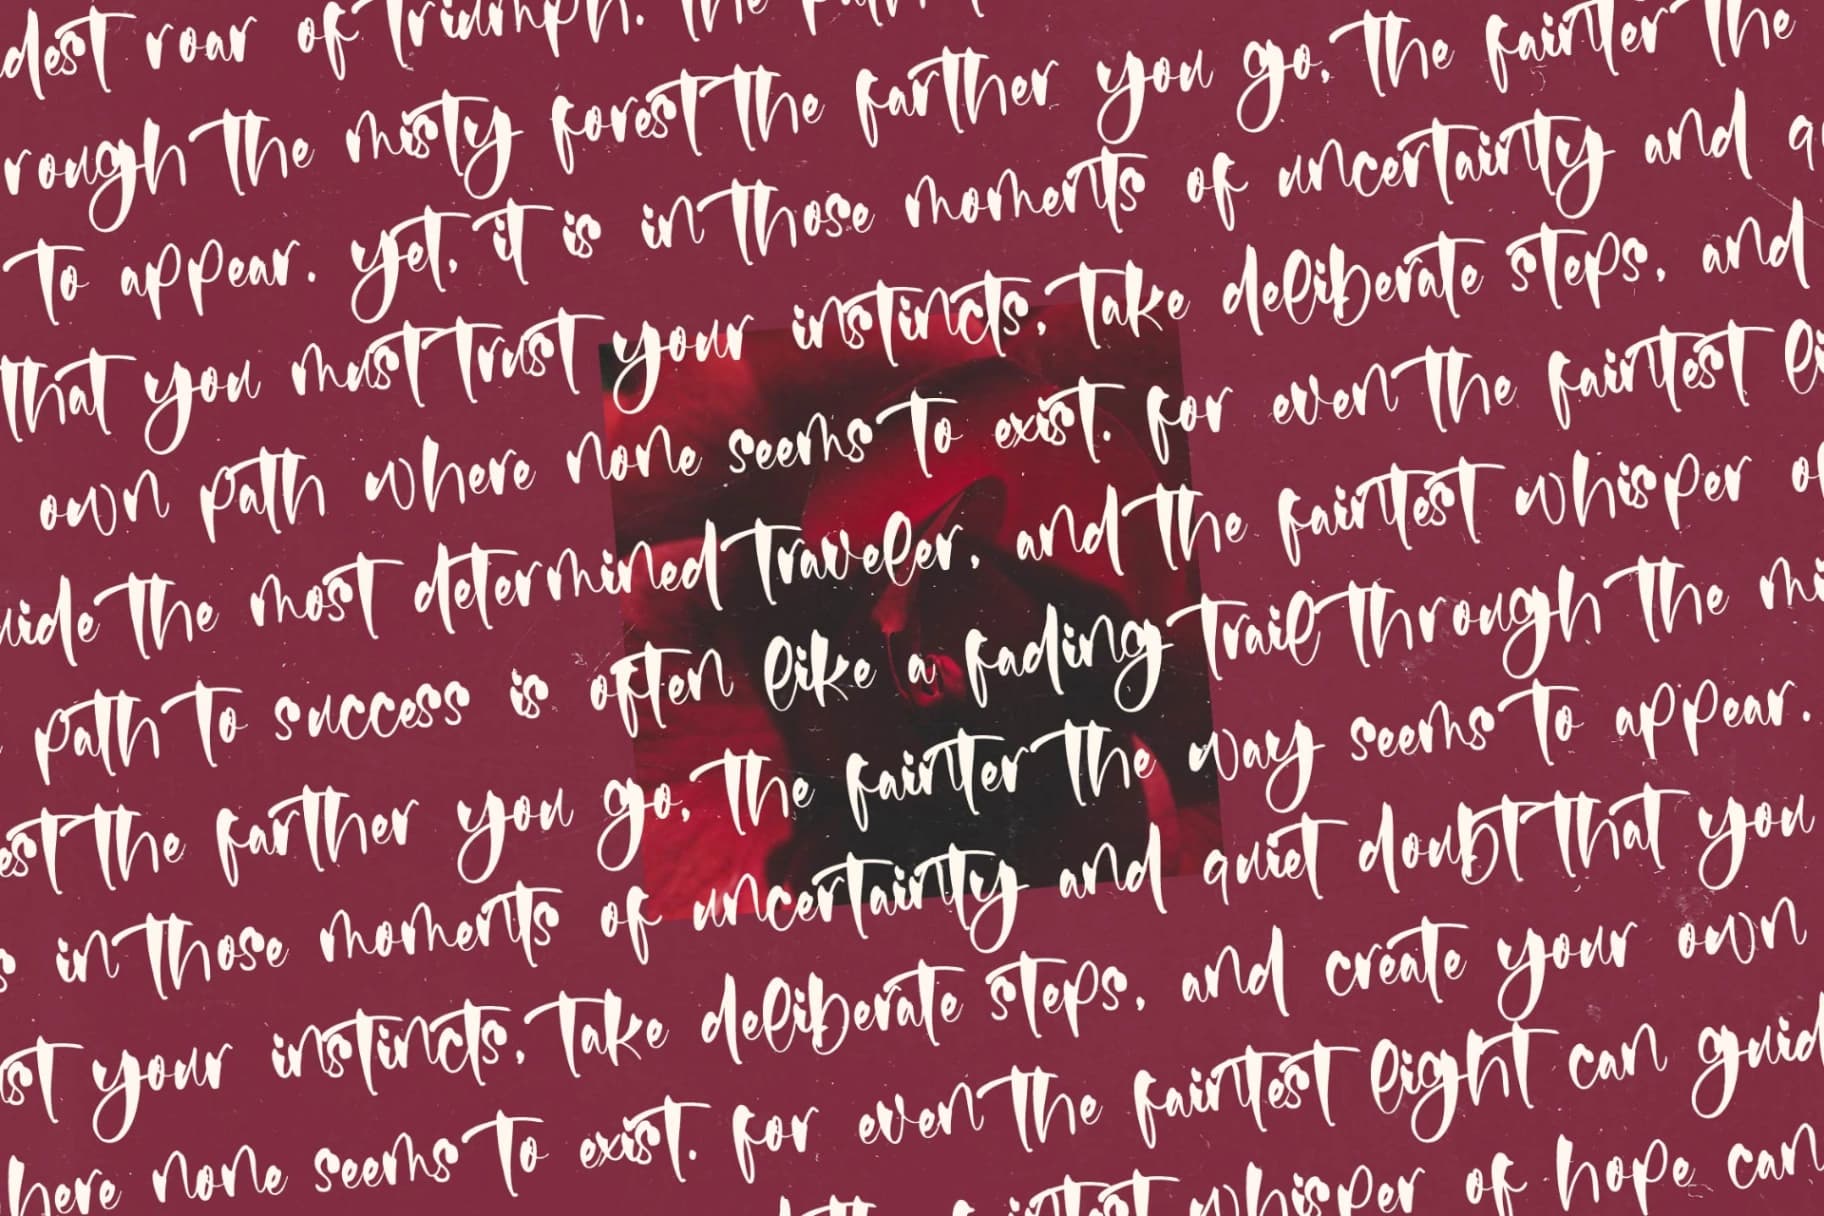 dest roar of triumph. the path t
rough the misty forest the farther you go, the fainter the
to appear. yet, it is in those moments of uncertainty and qu
that you must trust your instincts, take deliberate steps, and
own path where none seems to exist. for even the faintest li
uide the most determined traveler, and the faintest whisper of
path to success is often like a fading trail through the mi
est the farther you go, the fainter the way seems to appear.
s in those moments of uncertainty and quiet doubt that you
st your instincts, take deliberate steps, and create your own
here none seems to exist. for even the faintest light can guid
the faintest whisper of hope can